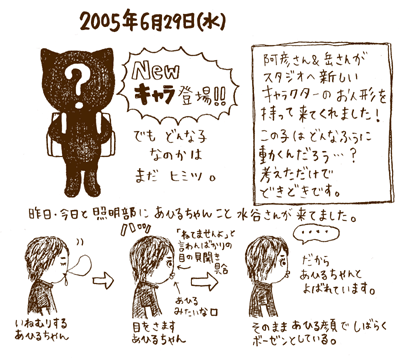 2005年6月29日(水)
?
New
キャラ登場!!
でも どんな子
なのかは
まだ ヒミツ。
阿彦さん&岳さんが
スタジオへ新しい
キャラクターのお人形を
持って来てくれました!
この子はどんなふうに
動くんだろう…?
考えただけで
どきどきです。
昨日・今日と照明部にあひるちゃんこと水谷さんが来てました。
いねむりする
あひるちゃん
パッ
「ねてませんよ」と
言わんばかりの
目の見開き
具合
あひる
みたいな口
目をさます
あひるちゃん
・・・・
だから
あひるちゃんと
よばれています。
そのままあひる顔でしばらく
ボーゼンとしている。